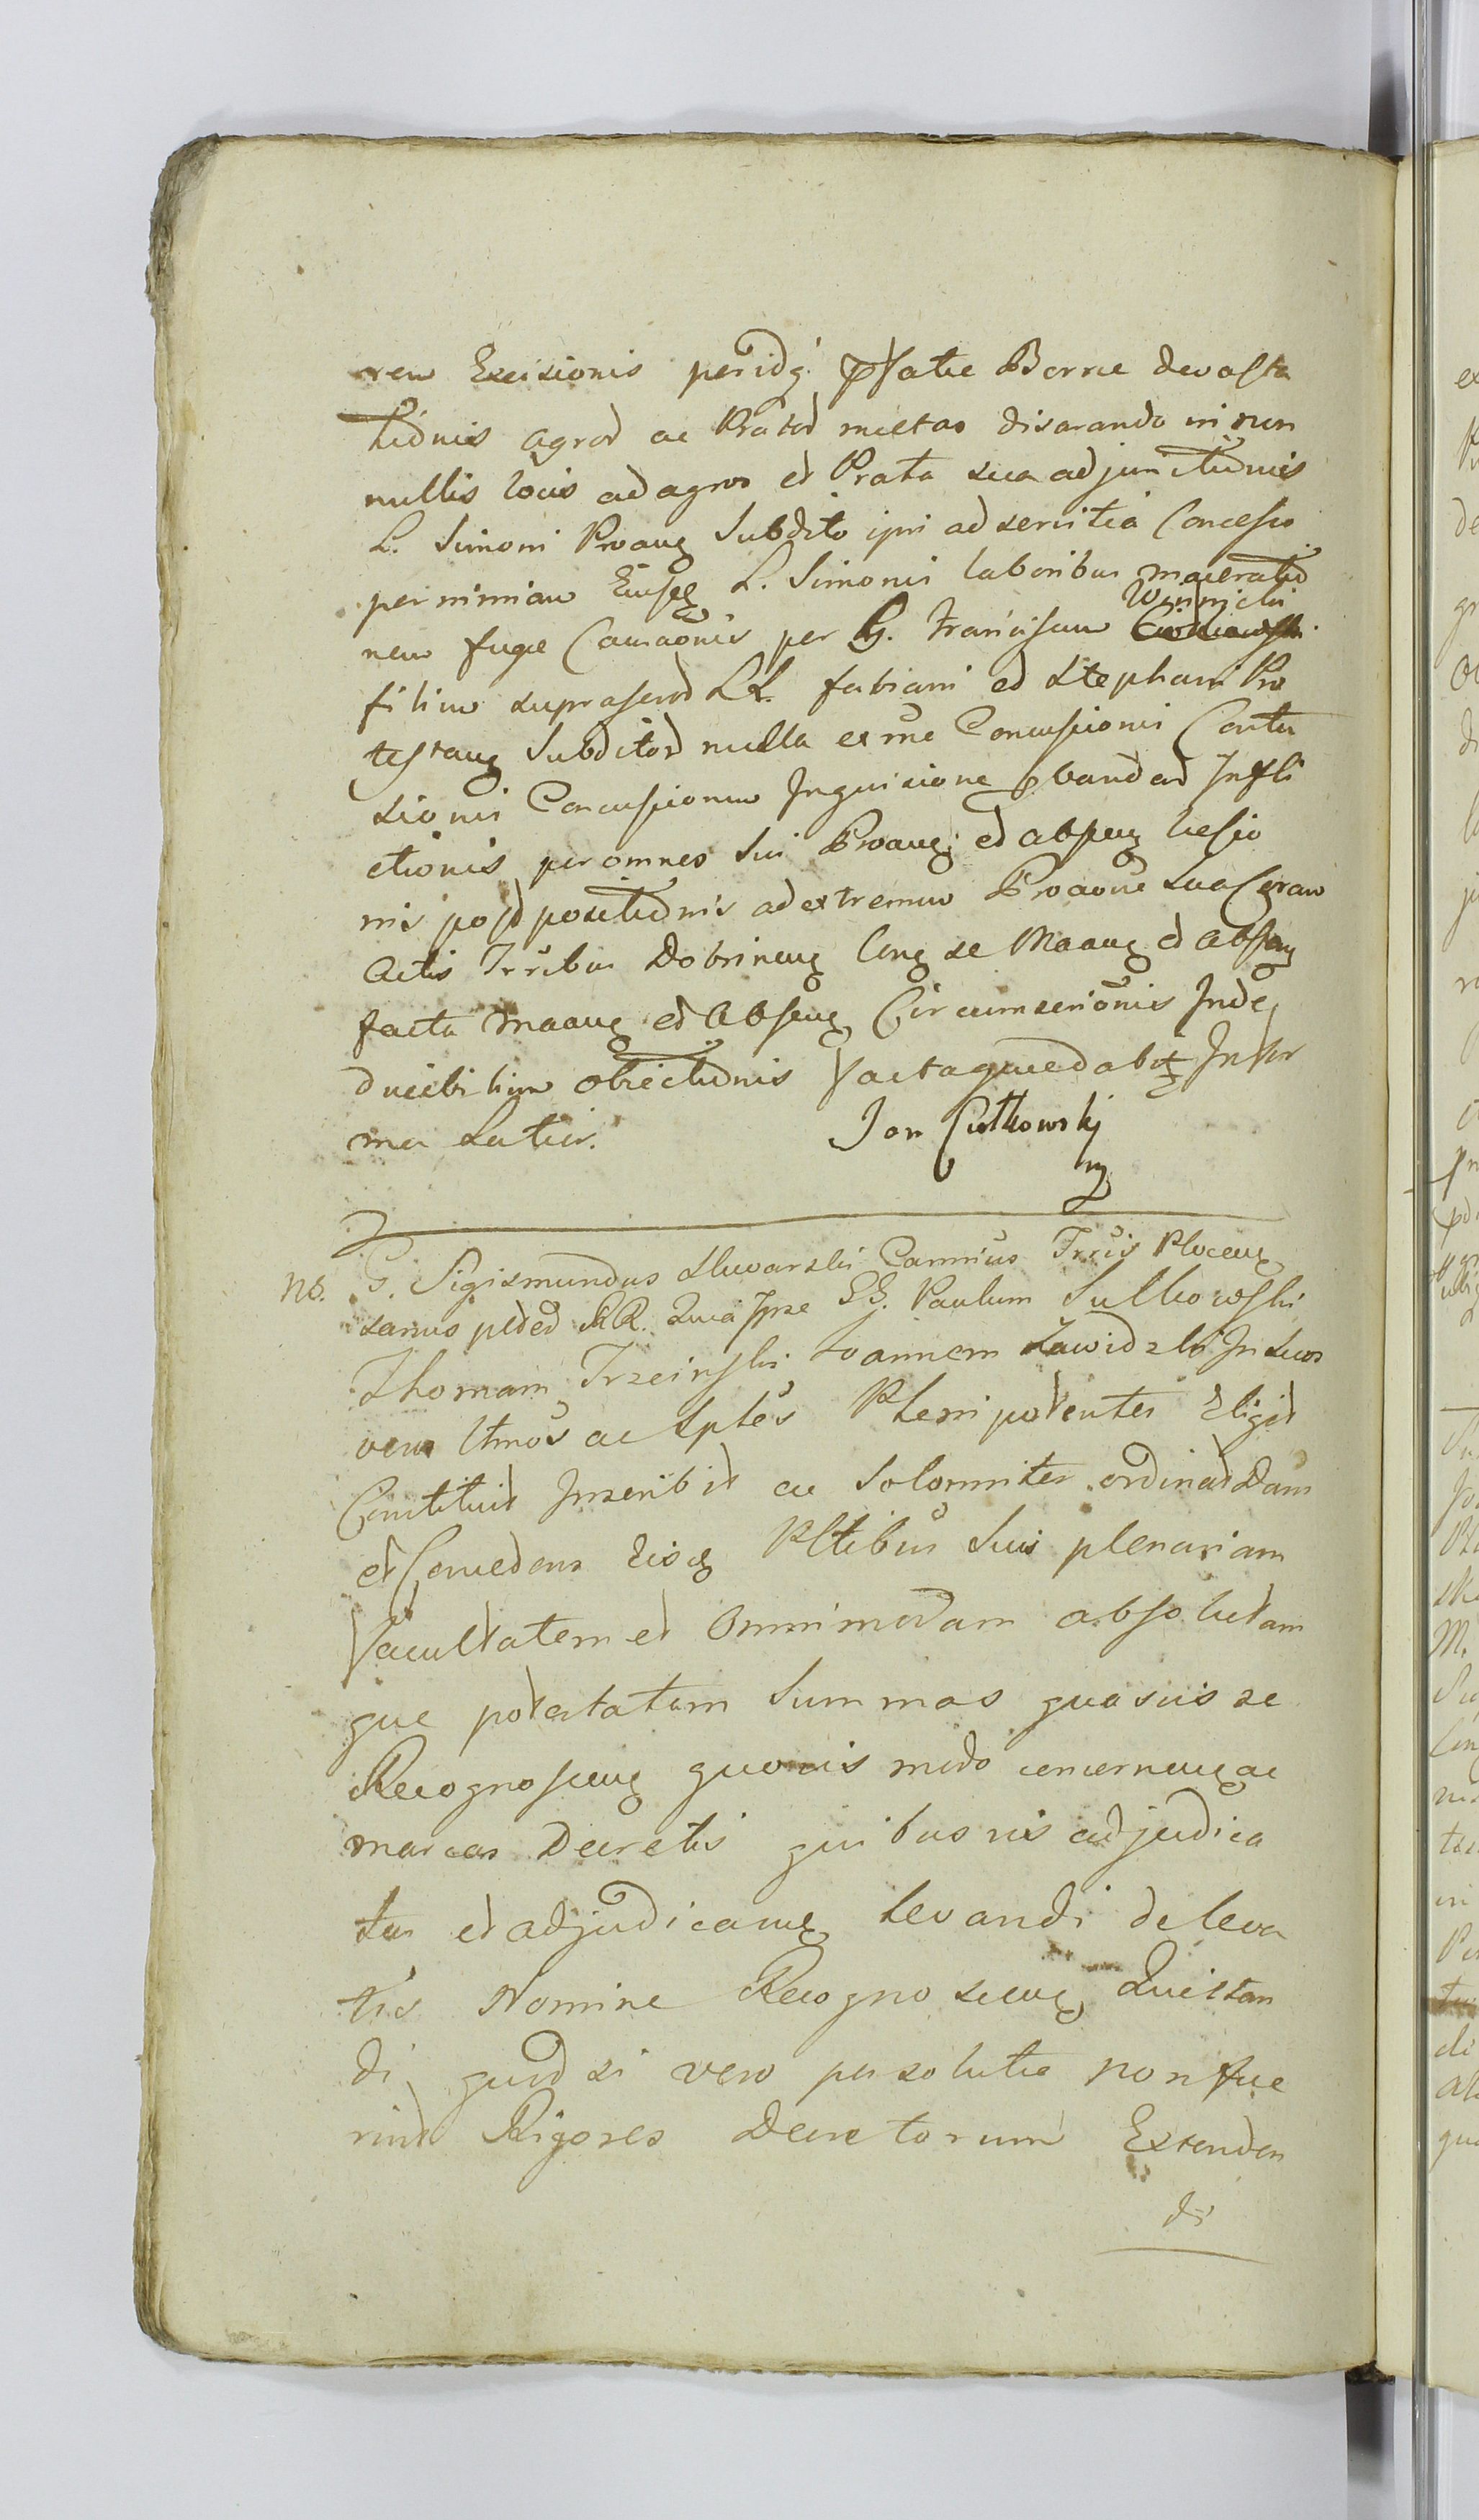 rem Excisionis peridg. pfatae Borrae devasta
tionis agror ac Prator metas disarando in non
nullis locis ad agros et Prata sua adjunctionis
L. Simoni Proang Subdito ipsi ad servitia Concesso
per nimiam Eiusq L. Simonis laboribus maceratio
nem fugae Causaonis per G. Franciscum Winnicki
filium suprascrod LL. Fabiani et Stephani Pro
testang Subditor nulla exme Concussionis Contu
sionis Concussionum Inquisione Infli
ctionis per omnes sui Proang et absen laesio
nis postpositionis ad extremum Proaone sua Coram
Actis Trribus Dobrineng Cong se Maang et Absen
facta Maang et Abseng Circumscrionis Inde
ducibilium obiectionis factaquedabit Infor
ma Latiis. Jan Cutkowskj
mp
No. G. Sigismundus Skwarski Camrius Trris Ploceng
sanus pltded RR. Quia Ipse GG. Paulum Sulkowski
Thomam Trzcinski, Joannem Zawidzki In suos
veros ltmos ac sples Plenipotentes Eligit
Constituit Inscribit ac Solemniter ordinat Dans
et Concedens Eisq Pltibus suis plenariam
facultatem et omnimodam absolutam
que potestatem Summas quasvis se
Recognosceng quovis modo concernengac
marcas Decretis quibusvis adjudica
tas et adjudicanng levandi de leva
tis Nomine Recognosceng Quietan
di quod si vero persolutae non fue
rint Rigores Decretorum Extenden
di